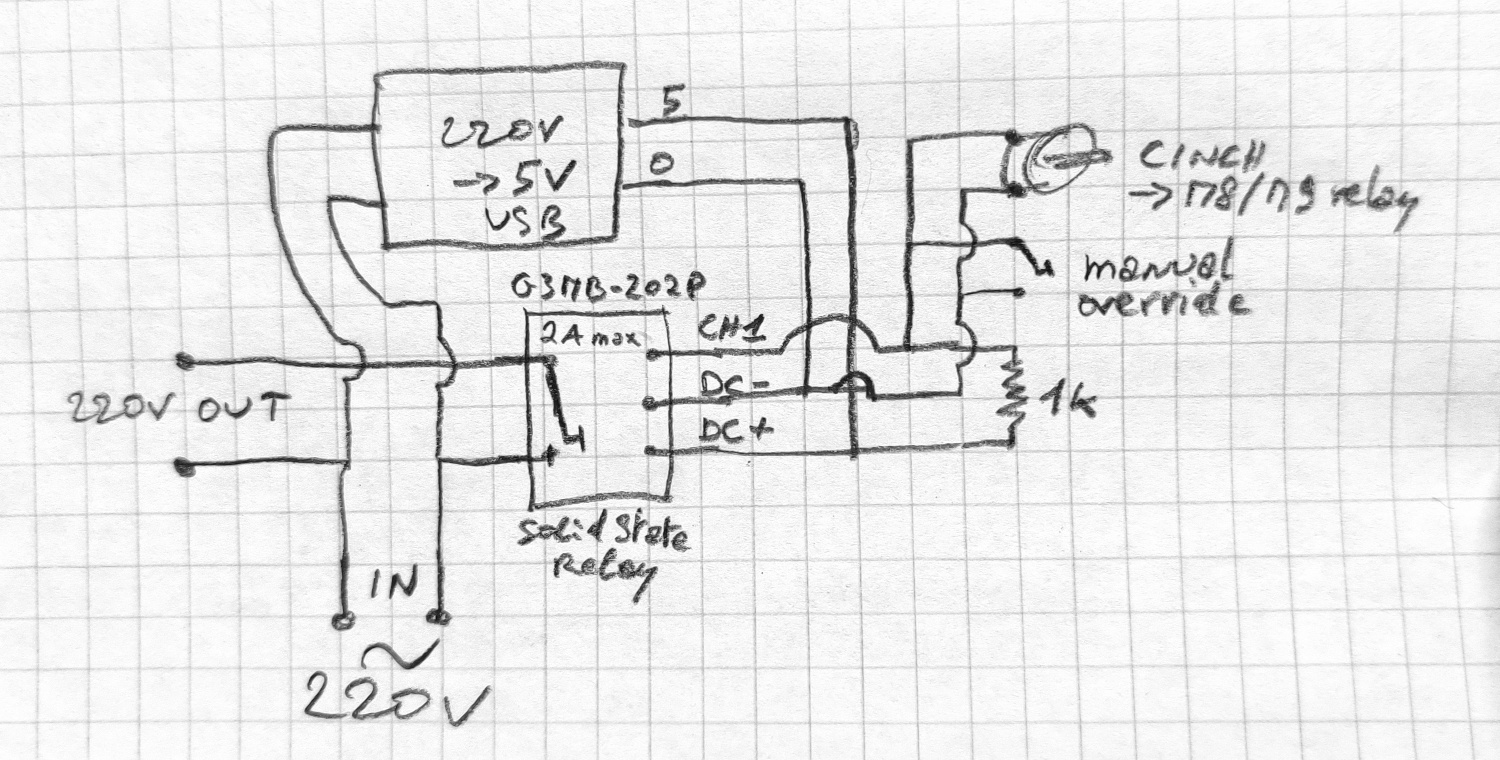 220V
→ 5V
USB
5
0
CINCH
→ M8/M9 relay
manual
override
G3MB-202P
2A max
CH1
DC-
DC+
1k
220V OUT
Solid State
Relay
IN
~
220V